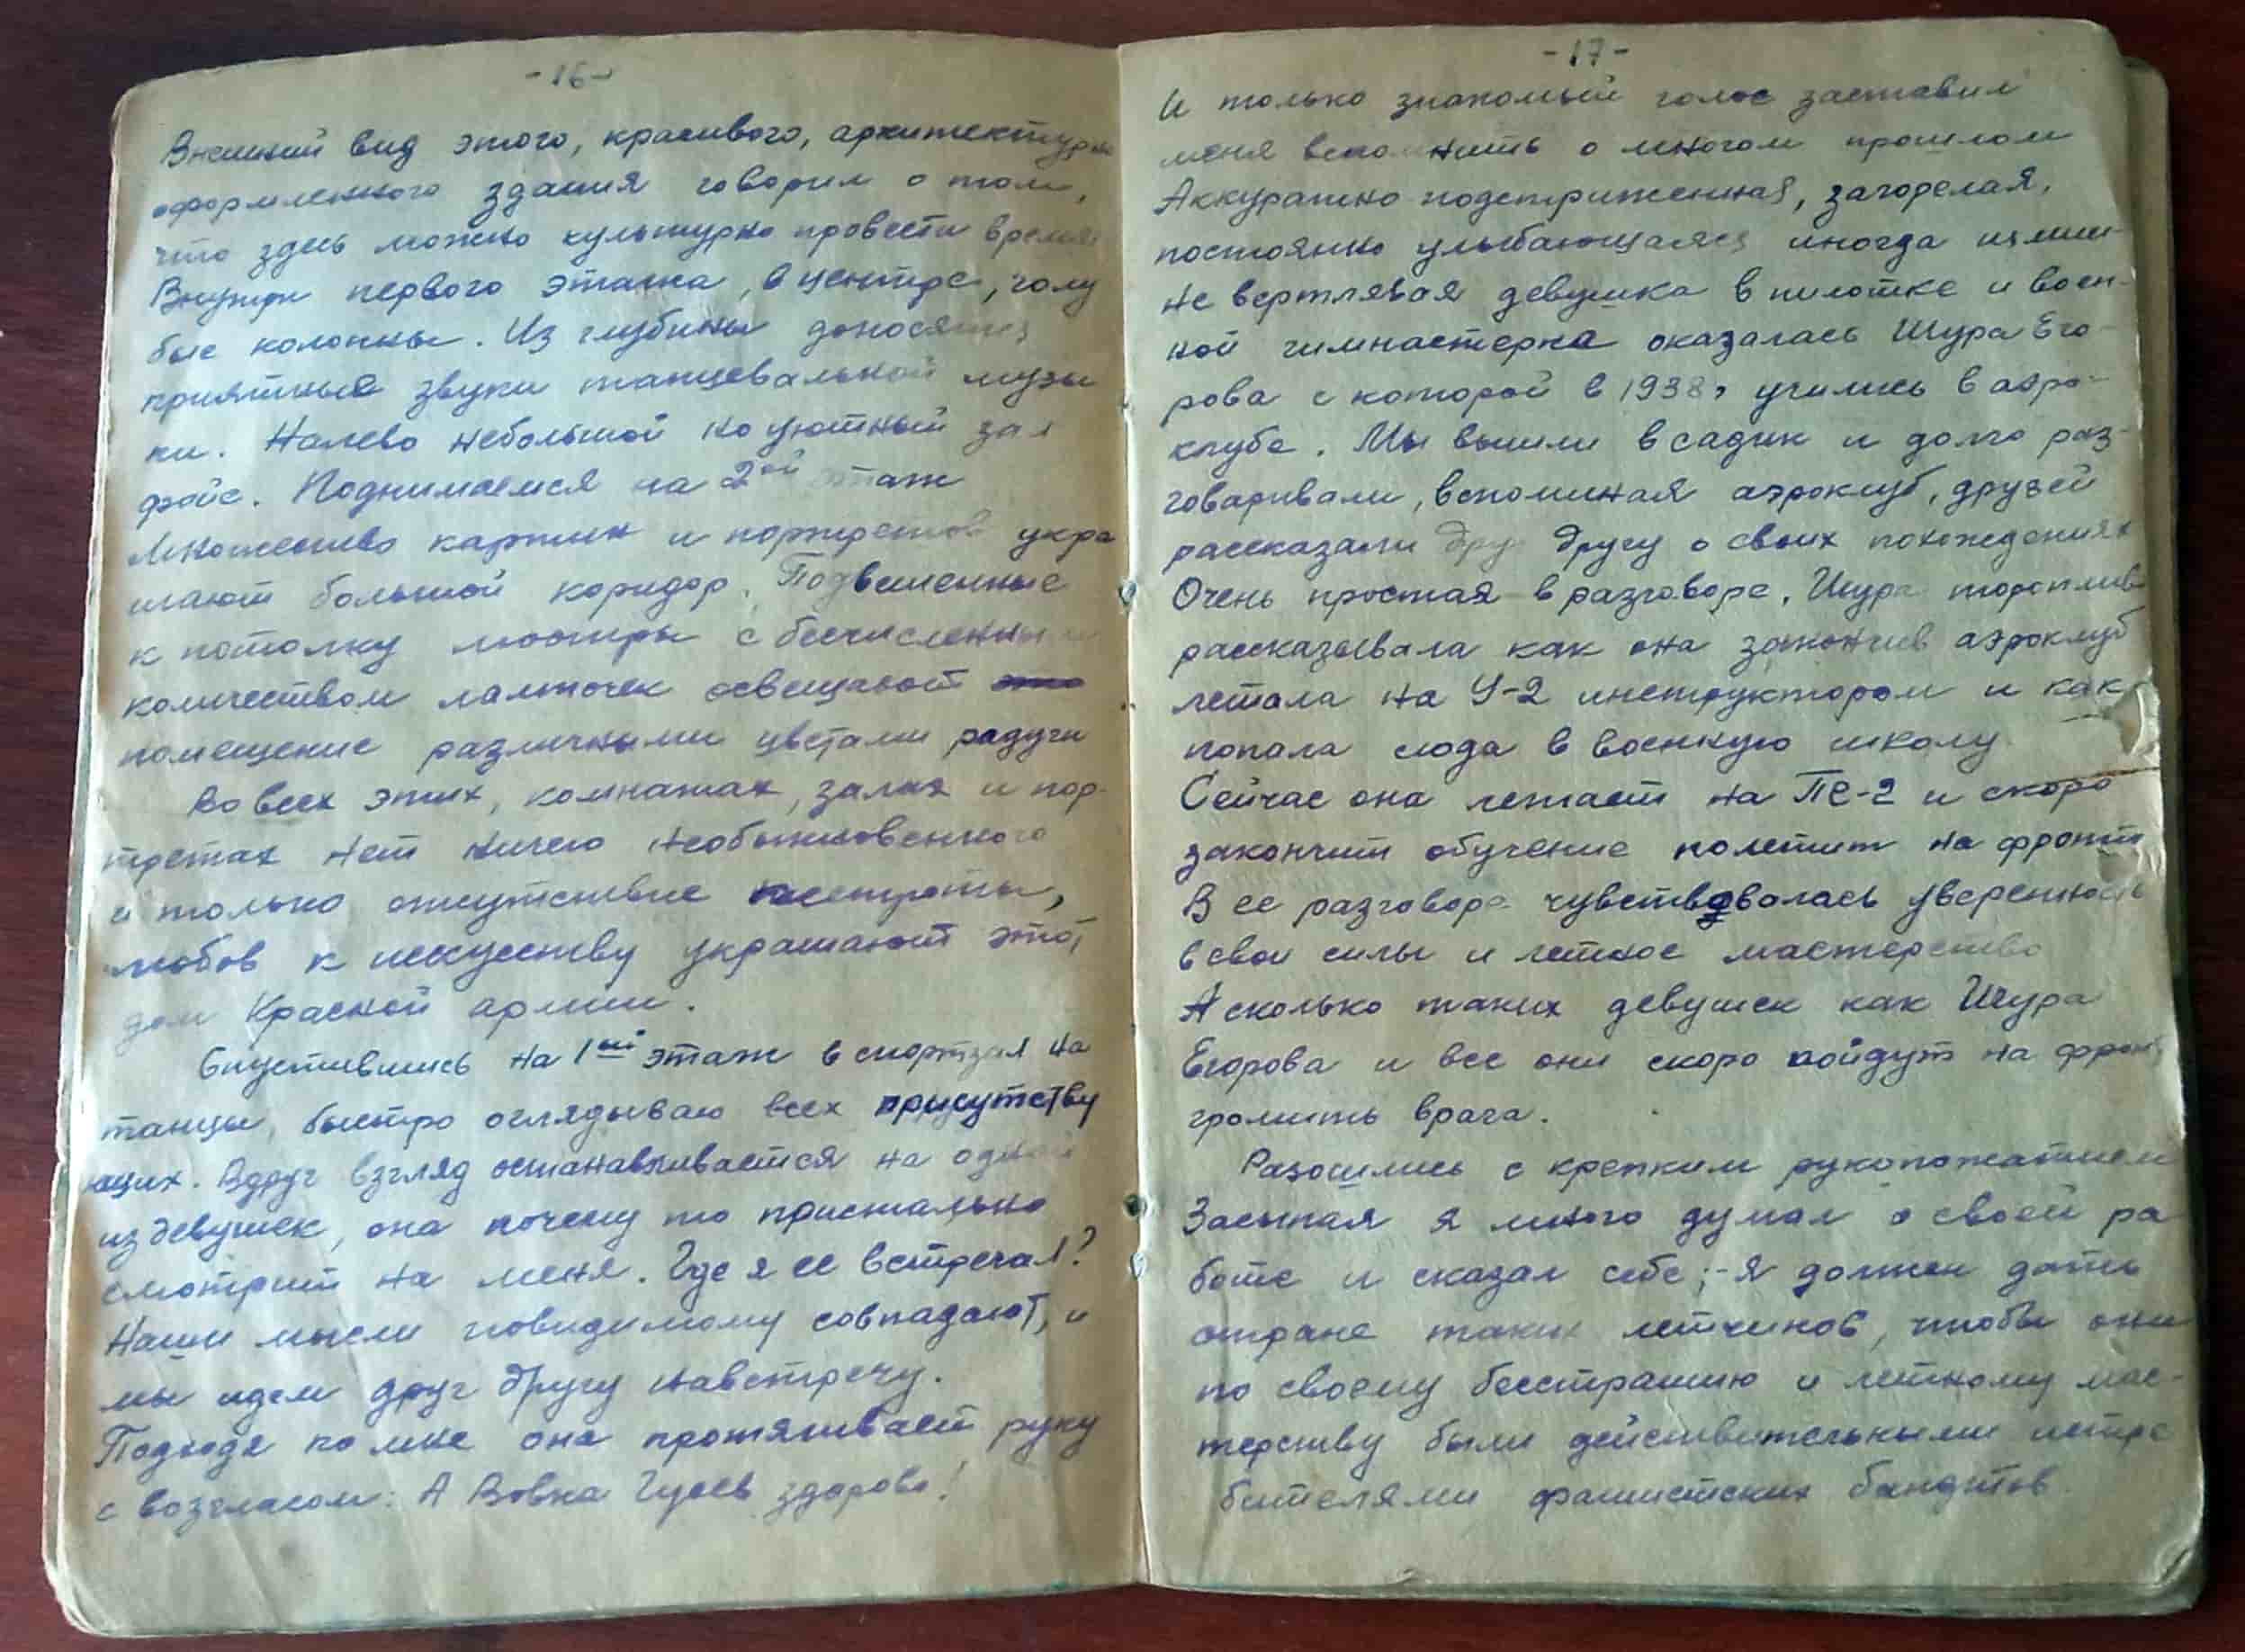 -16-
Внешний вид этого, красивого, архитектурно
оформленного здания говорил о том,
что здесь можно культурно провести время.
Внутри первого этажа, в центре, голу
бые колонны. Из глубины доносятся
приятные звуки танцевальной музы
ки. Налево небольшой но уютный зал
фойе. Поднимаемся на 2ой этаж
Множество картин и портретов укра
шают большой коридор. Подвешенные
к потолку люстры с бесчисленным
количеством лампочек освещают это
помещение различными цветами радуги
Во всех этих, комнатах, залах и пор-
третах нет ничего необыкновенного
и только отсутствие пестроты,
любовь к искусству украшают этот
дом Красной армии.
Спустившись на 1ый этаж в спортзал на
танцы, быстро оглядываю всех присутству
ющих. Вдруг взгляд останавливается на одной
из девушек, она почему то пристально
смотрит на меня. Где я ее встречал?
Наши мысли повидимому совпадают, и
мы идем друг другу навстречу.
Подходя ко мне она протягивает руку
с возгласом: А Вовка Гусев здорово!
-17-
И только знакомый голос заставил
меня вспомнить о многом прошлом
Аккуратно подстриженная, загорелая,
постоянно улыбающаяся иногда излиш-
не вертлявая девушка в пилотке и воен-
ной гимнастерке оказалась Шура Его-
рова с которой в 1938г учились в аэро-
клубе. Мы вышли в садик и долго раз-
говаривали, вспоминая аэроклуб, друзей
рассказали друг другу о своих похождениях
Очень простая в разговоре, Шура тороплив
рассказывала как она закончив аэроклуб
летала на У-2 инструктором и как
попала сюда в военную школу.
Сейчас она летает на Пе-2 и скоро
закончит обучение полетит на фронт
В ее разговоре чувствовалась уверенность
в свои силы и летное мастерство
А сколько таких девушек как Шура
Егорова и все они скоро пойдут на фронт
громить врага.
Разошлись с крепким рукопожатием
Засыпая я много думал о своей ра
боте и сказал себе; -я должен дать
стране таких летчиков, чтобы они
по своему бесстрашию и летному мас-
терству были действительными истре
бителями фашистских бандитов